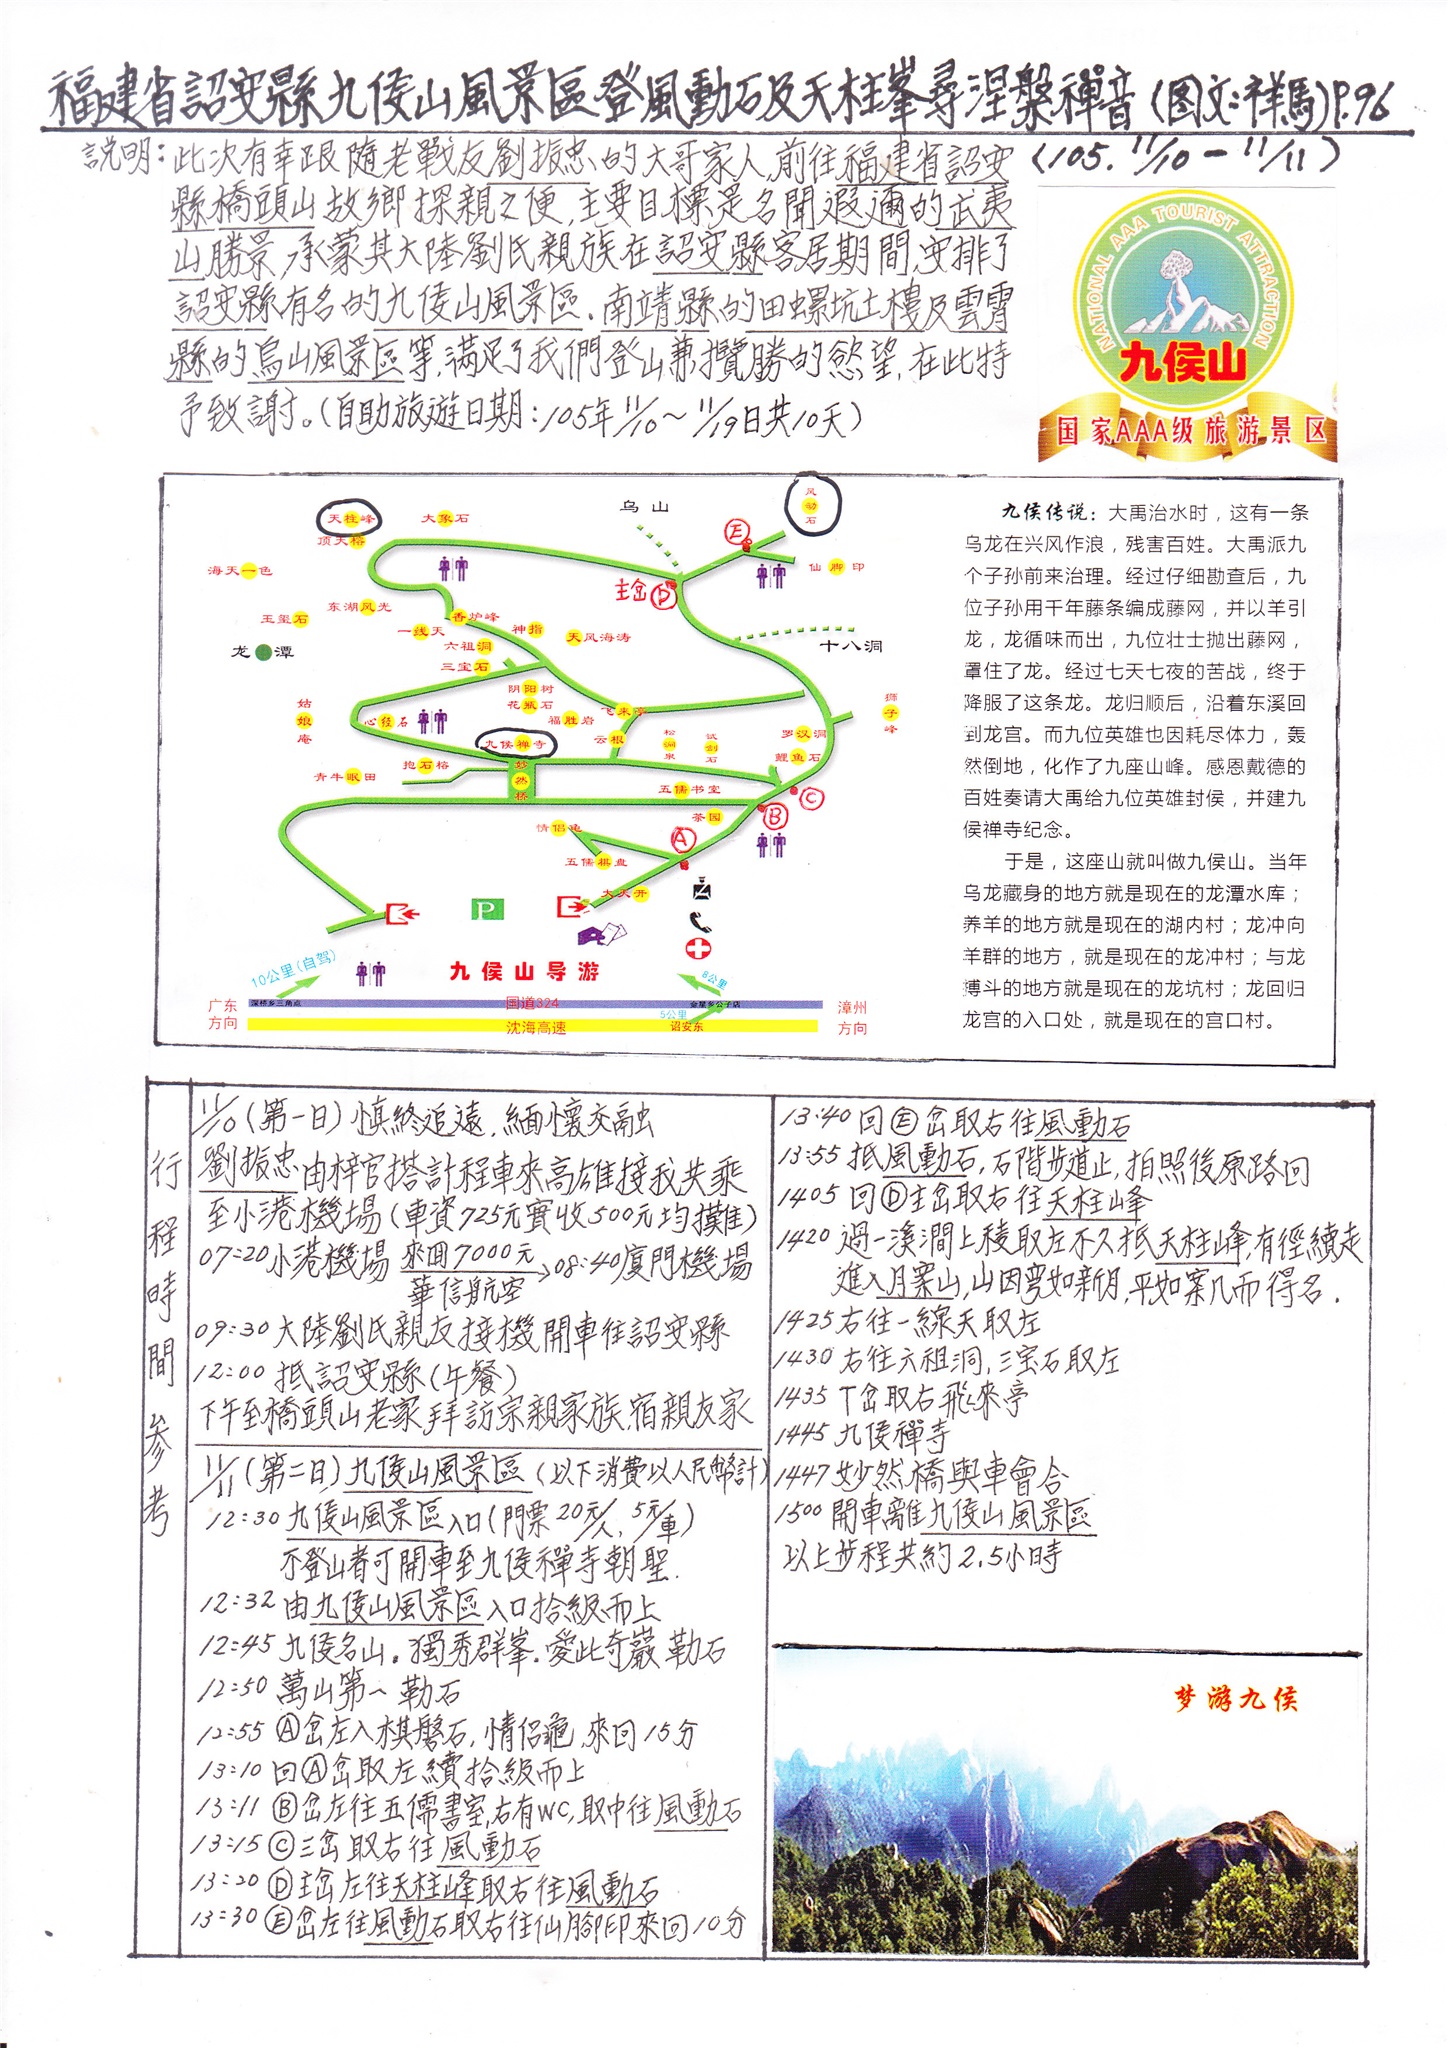 福建省詔安縣九侯山風景區登風動石及天柱峯尋涅槃禪音(图文:祥馬)P.96
(105. 11/10－11/11)
説明:此次有幸跟隨老戰友劉振忠的大哥家人,前往福建省詔安
縣橋頭山故鄉探親之便,主要目標是名聞遐邇的武夷
山勝景,承蒙其大陸劉氏親族在詔安縣客居期間,安排了
詔安縣有名的九侯山風景區.南靖縣的田螺坑土樓及雲霄
縣的烏山風景區等,滿足了我們登山兼攬勝的慾望,在此特
予致謝。(自助旅遊日期:105年11/10~11/19日共10天)
NATIONAL AAA TOURIST ATTRACTION
九侯山
国家AAA级旅游景区
天柱峰
大象石
乌山
风动石
顶天榕
E
海天一色
仙脚印
主岔D
东湖风光
玉玺石
香炉峰
一线天
神指
天风海涛
六祖洞
十八洞
龙潭
三宝石
阴阳树
花瓶石
姑娘庵
心经石
福胜岩
飞来亭
狮子峰
九侯禅寺
云根
松涧泉
试剑石
罗汉洞
鲤鱼石
抱石榕
青牛眠田
妙然桥
五儒书室
C
B
茶园
情侣龟
A
五儒棋盘
大天开
P
九侯山导游
10公里(自驾)
8公里
广东方向
深桥乡三角点
国道324
金星乡公子店
漳州方向
沈海高速
5公里
诏安东
九侯传说：大禹治水时，这有一条
乌龙在兴风作浪，残害百姓。大禹派九
个子孙前来治理。经过仔细勘查后，九
位子孙用千年藤条编成藤网，并以羊引
龙，龙循味而出，九位壮士抛出藤网，
罩住了龙。经过七天七夜的苦战，终于
降服了这条龙。龙归顺后，沿着东溪回
到龙宫。而九位英雄也因耗尽体力，轰
然倒地，化作了九座山峰。感恩戴德的
百姓奏请大禹给九位英雄封侯，并建九
侯禅寺纪念。
于是，这座山就叫做九侯山。当年
乌龙藏身的地方就是现在的龙潭水库；
养羊的地方就是现在的湖内村；龙冲向
羊群的地方，就是现在的龙冲村；与龙
搏斗的地方就是现在的龙坑村；龙回归
龙宫的入口处，就是现在的宫口村。
行程時間參考
11/10(第一日)慎終追遠,緬懷交融
劉振忠由梓官搭計程車來高雄接我共乘
至小港機場(車資725元實收500元均攤)
07:20小港機場 來回7000元 華信航空 →08:40廈門機場
09:30大陸劉氏親友接機開車往詔安縣
12:00 抵詔安縣(午餐)
下午至橋頭山老家拜訪宗親家族.宿親友家
11/11(第二日)九侯山風景區(以下消費以人民幣計)
12:30九侯山風景區入口(門票20元/人,5元/車)
不登山者可開車至九侯禪寺朝聖.
12:32由九侯山風景區入口拾級而上
12:45九侯名山.獨秀群峯.愛此奇巖勒石
12:50萬山第一勒石
12:55 Ⓐ岔左入棋磐石,情侶龜,來回15分
13:10回Ⓐ岔取左續拾級而上
13:11 Ⓑ岔左往五儒書室,右有WC,取中往風動石
13:15 Ⓒ三岔取右往風動石
13:20 Ⓓ主岔左往天柱峰取右往風動石
13:30 Ⓔ岔左往風動石取右往仙腳印來回10分
13:40回Ⓔ岔取右往風動石
13:55抵風動石,石階步道止,拍照後原路回
1405回Ⓓ主岔取右往天柱峰
1420過一溪澗上稜取左不久抵天柱峰,有徑續走
進入月案山,山因彎如新月,平如案几而得名.
1425右往一線天取左
1430右往六祖洞,三宝石取左
1435T岔取右飛來亭
1445九侯禪寺
1447妙然橋與車會合
1500開車離九侯山風景區
以上步程共約2.5小時
梦游九侯